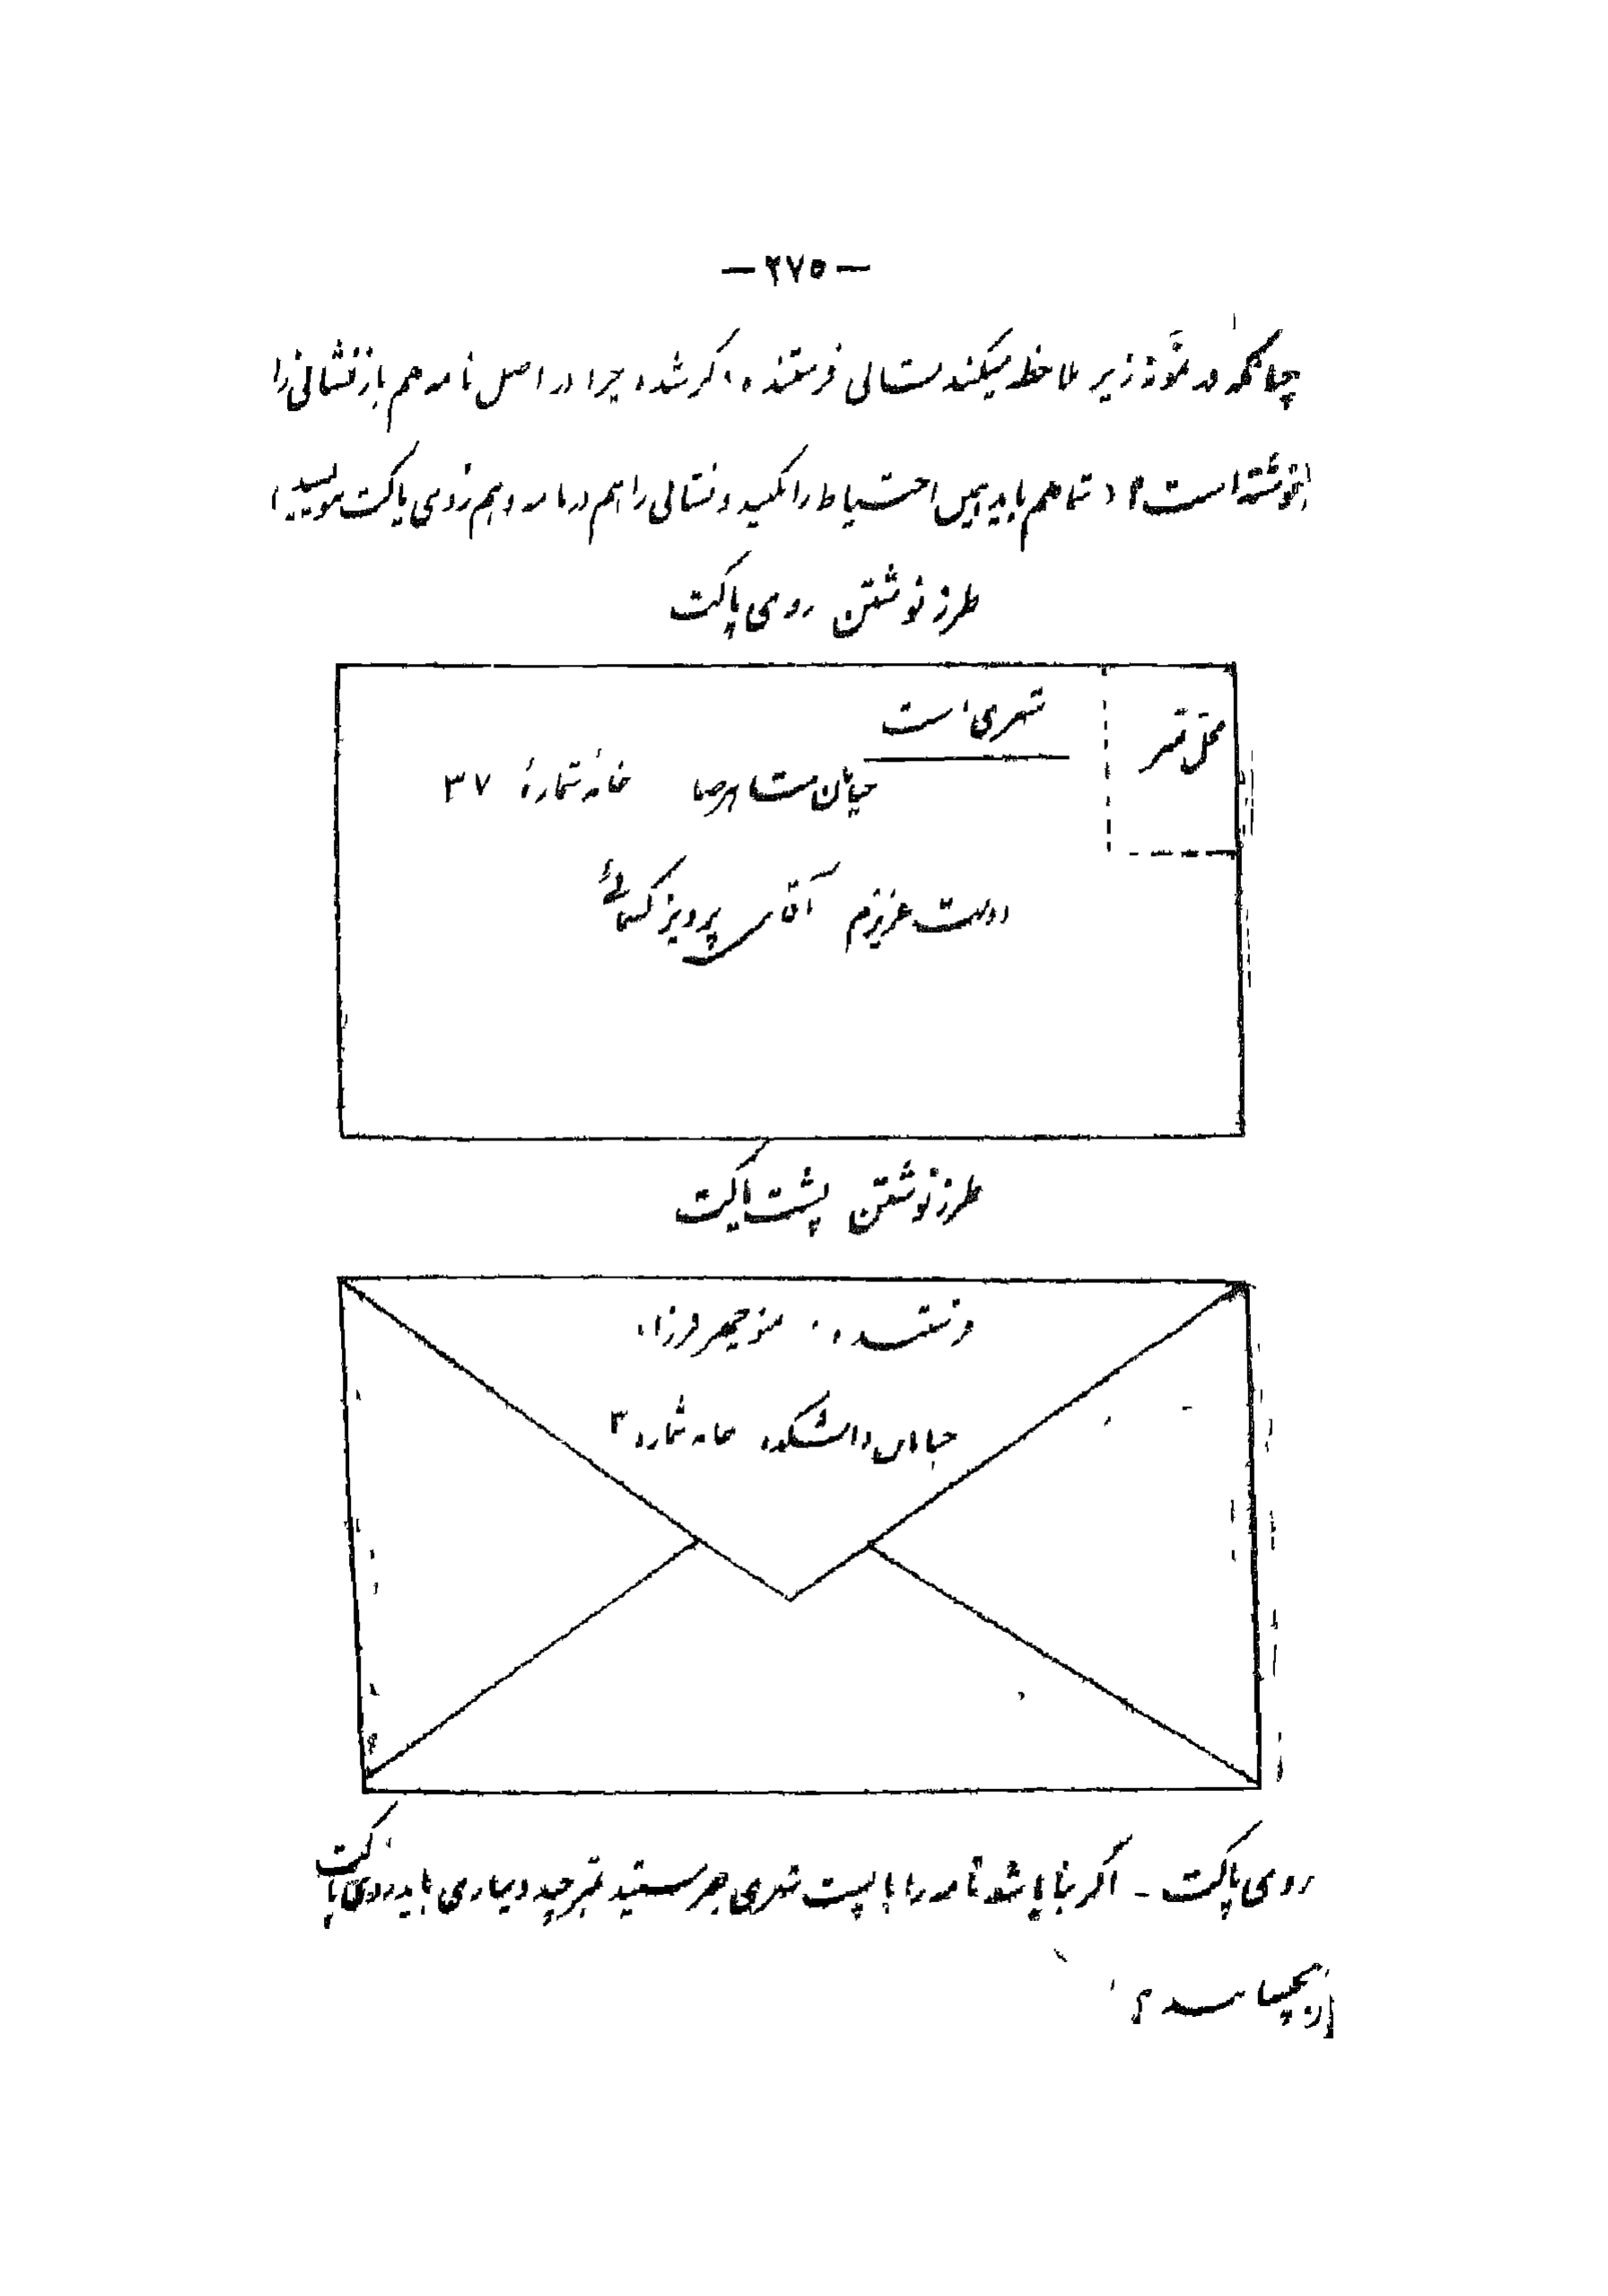 — ۲۷۵ —
چنانکه در نمونهٔ زیر ملاحظه میکنید نشانی فرستنده ذکر شده چرا در اصل نامه هم باز نشانی را
نوشته است؟ (شما هم باید همین احتیاط را بکنید و نشانی را هم در نامه و هم روی پاکت بنویسید)
طرز نوشتن روی پاکت
محل تمبر
شهری است
خیابان شاهرضا خانهٔ شمارهٔ ۳۷
دوست عزیزم آقای پرویز کسائی
طرز نوشتن پشت پاکت
فرستنده: منوچهر فرزاد
خیابان دانشکده خانه شماره ۳
روی پاکت - اگر بنا باشد نامه را با پست شهری بفرستید تمبر چند دیناری باید روی پاکت
آن بچسبانید؟